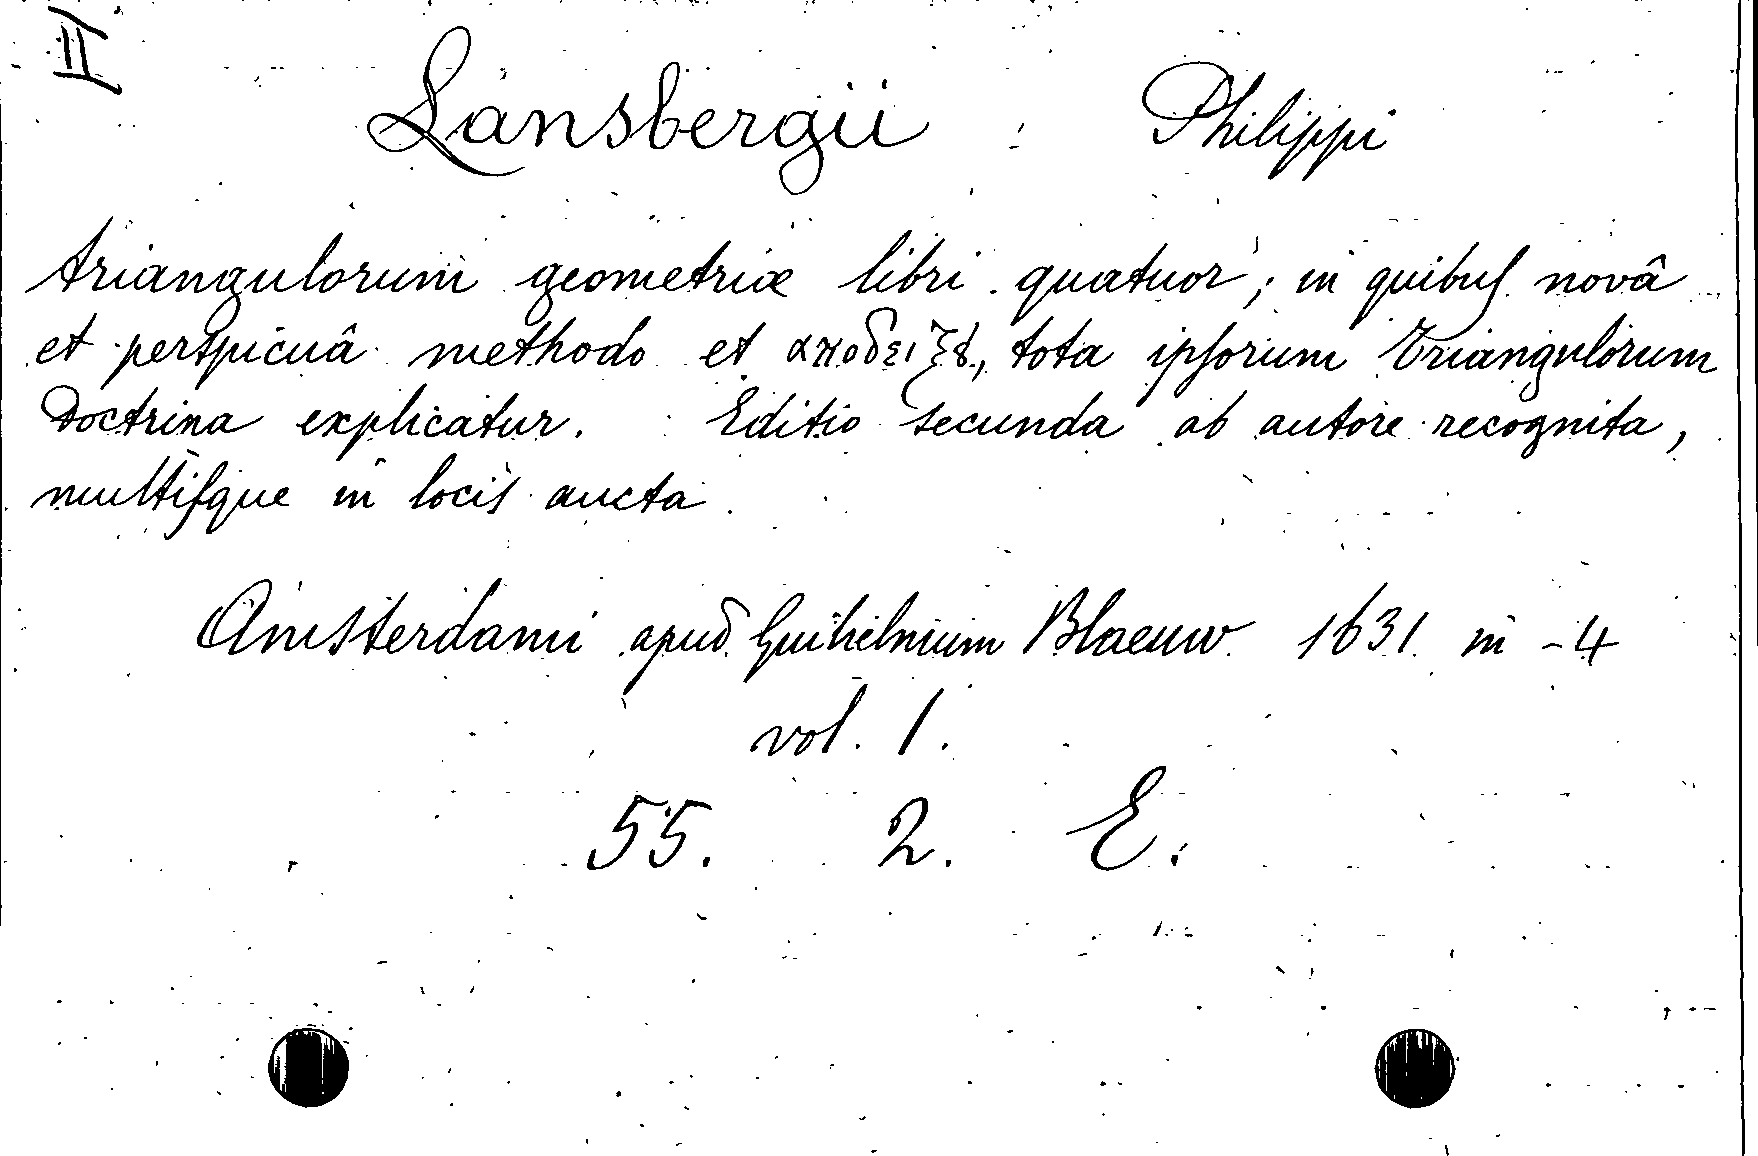 II
Lansbergii Philippi
triangulorum geometriæ libri quatuor; in quibus novâ
et perspicuâ methodo et αποδειξει, tota ipsorum triangulorum
Doctrina explicatur. Editio secunda ab autore recognita,
multisque in locis aucta.
Amsterdami apud Guihelmium Blaeuw 1631 in -4
vol. 1.
55. 2. E.